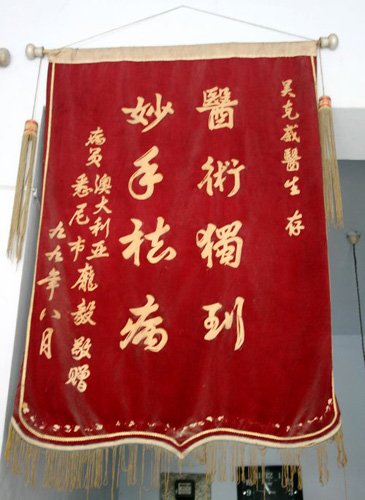 吴克 醫生 存
醫術獨到
妙手祛病
病员 澳大利亚
悉尼市 龐毅 敬赠
九九年八月